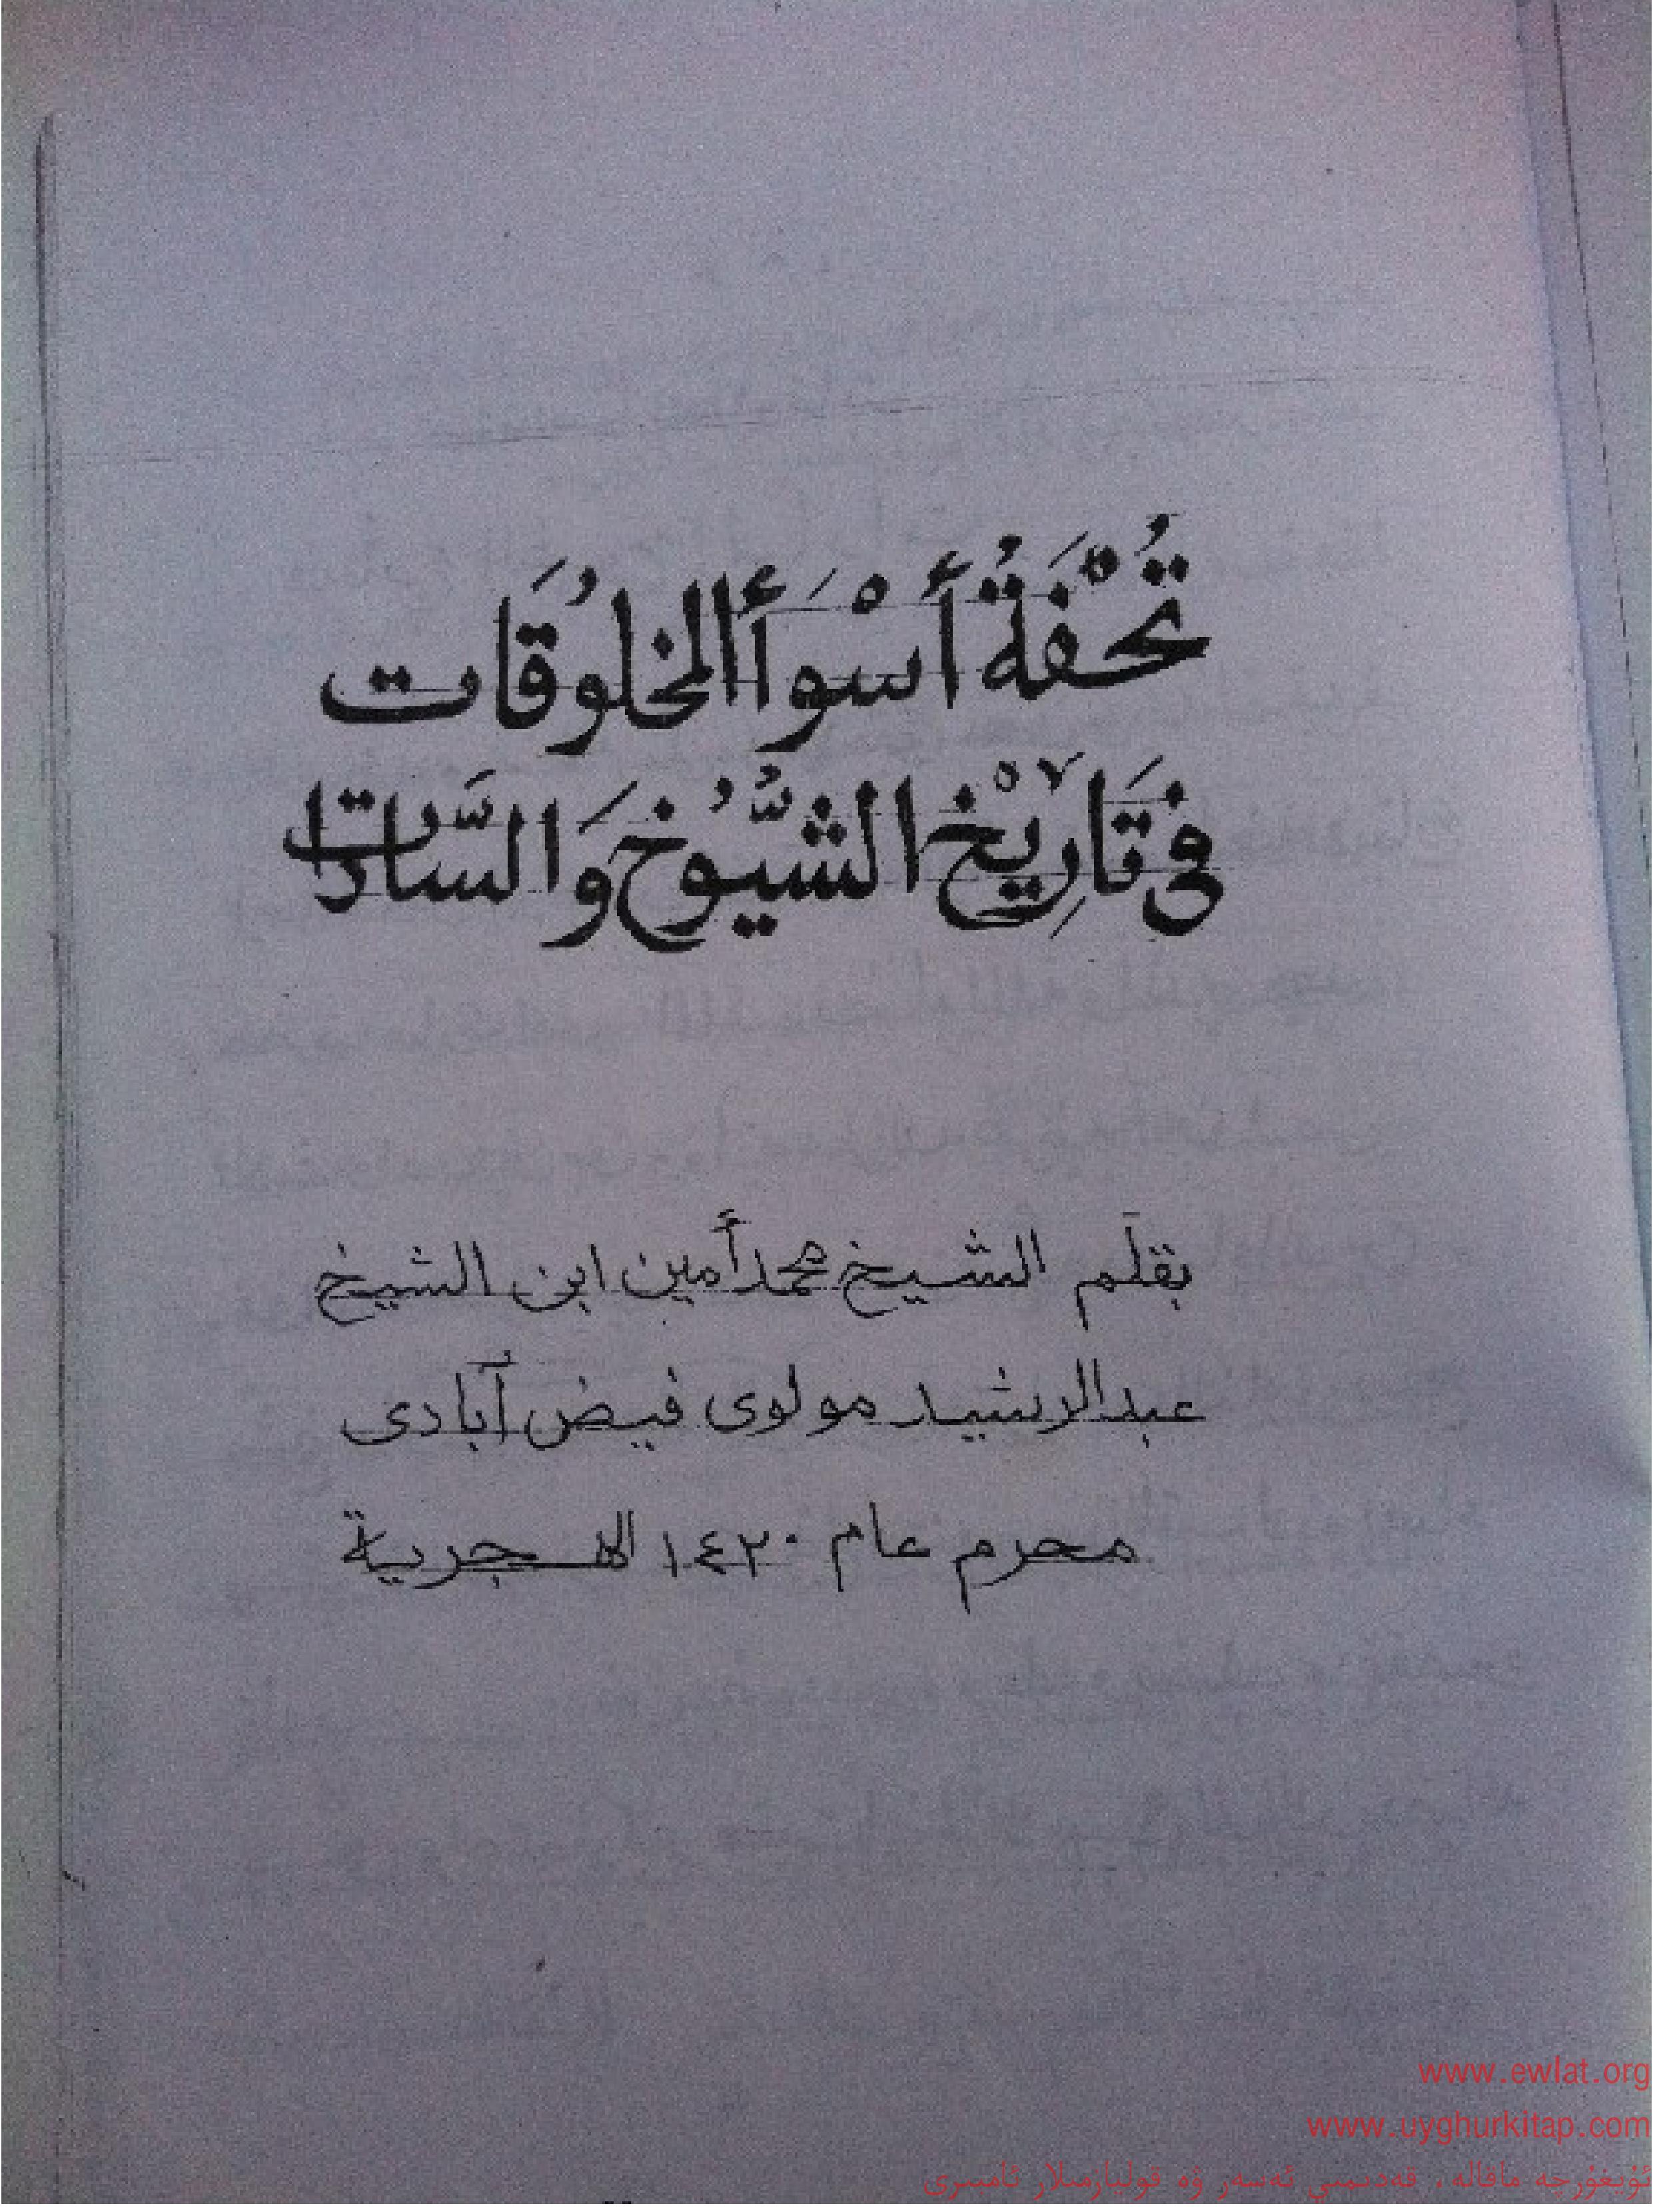 تُحْفَةُ أَسْوَأَ المَخلُوقَات
فِى تَارِيْخ الشُّيُوخ وَالسَّادَات
بقلم الشيخ محمد أمين ابن الشيخ
عبد الرشيد مولوى فيض آبادى
محرم عام ١٤٢٠ الهجرية
www.ewlat.org
www.uyghurkitap.com
ئۇيغۇرچە ماقالە، قەدىمىي ئەسەر ۋە قوليازمىلار ئامبىرى